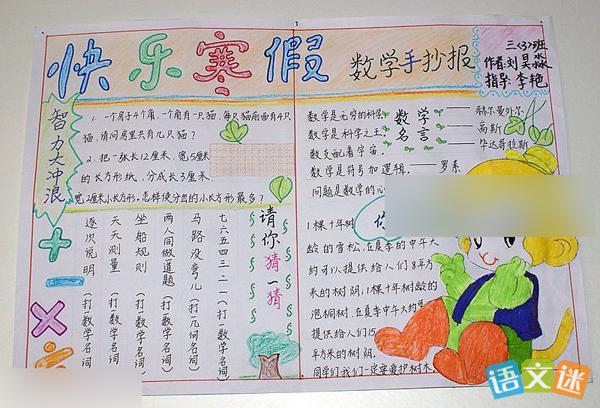 快乐寒假
数学手抄报
三〈3〉班
作者:刘昊淼
指导:李艳
智力大冲浪
1.一个房子4个角,一个角有一只猫,每只猫前面有4只
猫,请问房里共有几只猫?
2.把一张长12厘米,宽5厘米
的长方形纸,分成长3厘米,
宽2厘米小长方形,怎样使分出的小长方形最多?
请你猜一猜
七六五四三二一(打一数学名词)
马路没弯儿(打几何名词)
两人同做道题(打一数学名词)
坐船规则(打一数学名词)
天天测量(打一数学名词)
逐次说明(打一数学名词)
数学名言
数学是无穷的科学 —— 赫尔曼外尔
数学是科学之王 —— 高斯
数支配着宇宙。 —— 毕达哥拉斯
数学是符号加逻辑。——罗素
问题是数学的心
1棵十年树
龄的雪松,在夏季的中午大
约可以提供给人们8平方
米的树阴;1棵十年树龄的
泡桐树,在夏季中午大约
提供给人们15
平方米的树阴。
同学们我们一定要爱护树木
语文迷